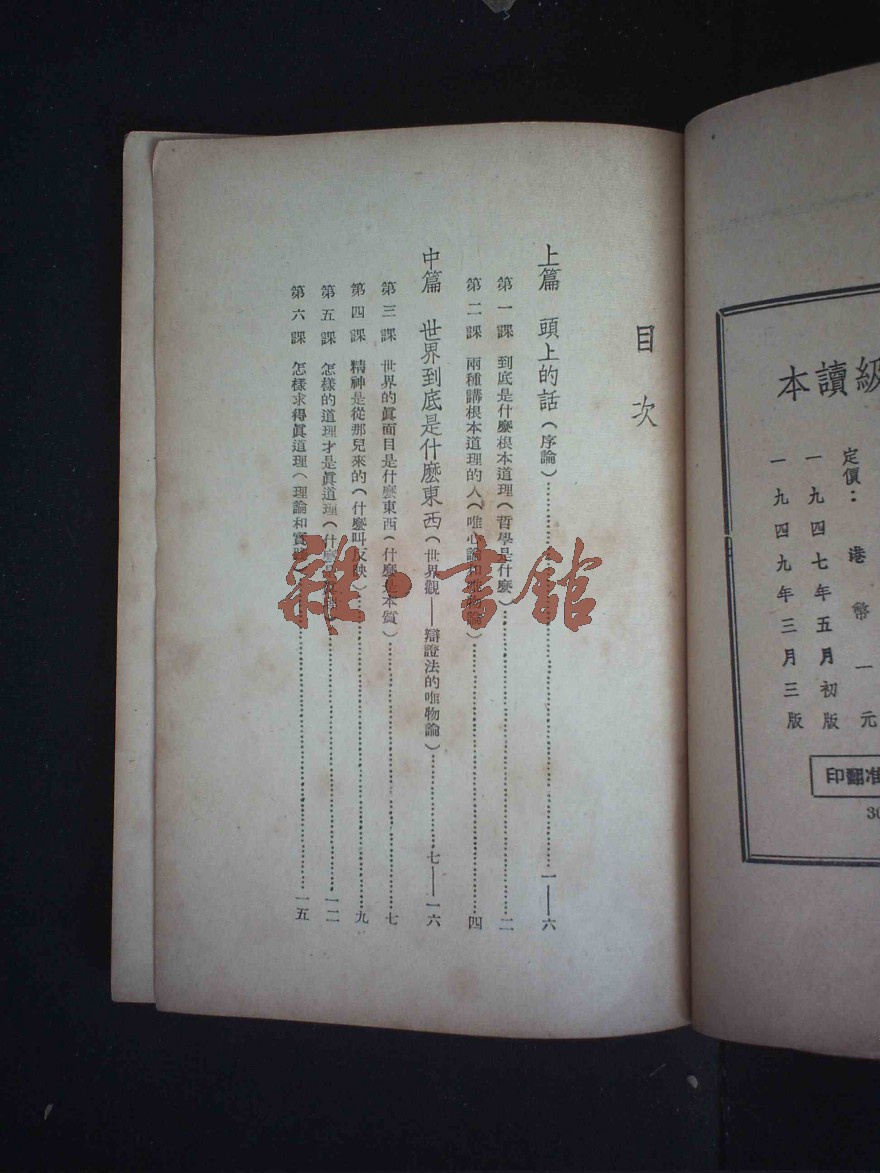 級讀本
定價：港幣一元
一九四七年五月初版
一九四九年三月三版
准翻印
30
目次
上篇 頭上的話（序論）……一——六
第一課 到底是什麼根本道理（哲學是什麼）……二
第二課 兩種講根本道理的人（唯心論和唯物論）……四
中篇 世界到底是什麼東西（世界觀——辯證法的唯物論）……七——一六
第三課 世界的眞面目是什麼東西（什麼是本質）……七
第四課 精神是從那兒來的（什麼叫反映）……九
第五課 怎樣的道理才是眞道理（什麼……一二
第六課 怎樣求得眞道理（理論和實踐）……一五
雜·書館